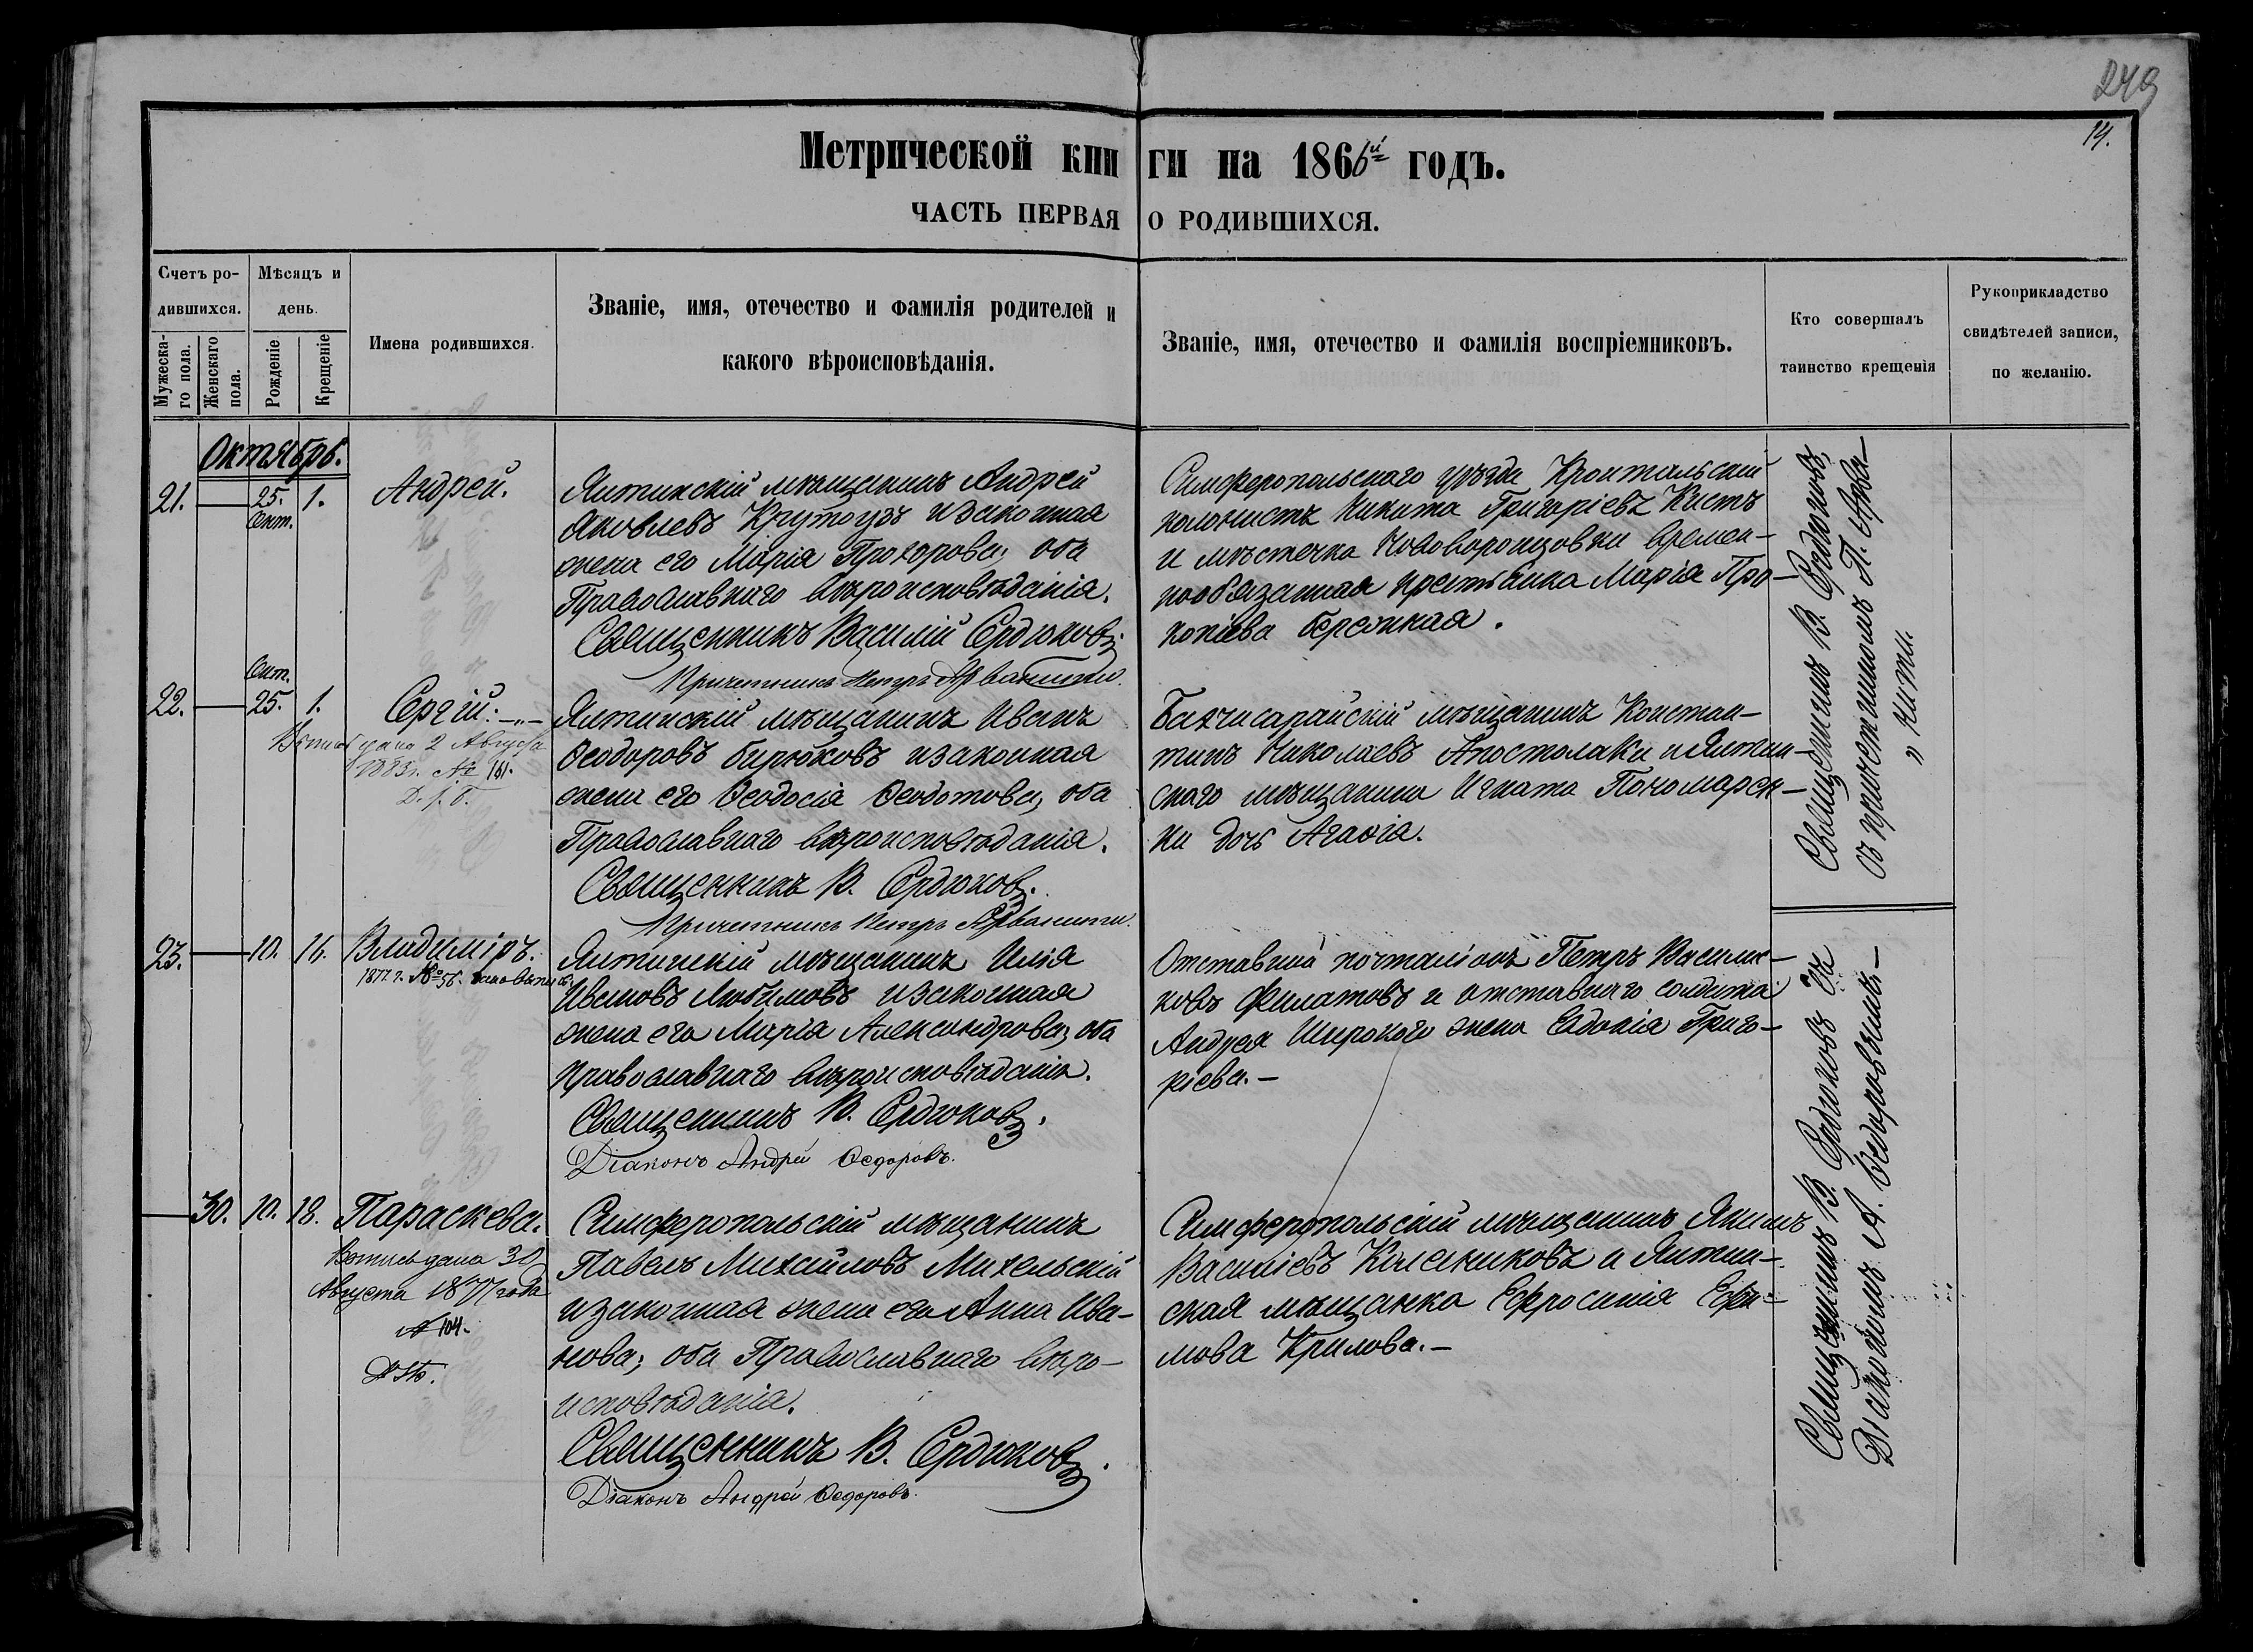 249
14.
Метрической книги на 1866й годъ.
ЧАСТЬ ПЕРВАЯ О РОДИВШИХСЯ.
Счетъ ро-
дившихся.
Мужеска-
го пола.
Женскаго
пола.
Мѣсяцъ и
день.
Рожденіе
Крещеніе
Имена родившихся.
Званіе, имя, отечество и фамилія родителей и
какого вѣроисповѣданія.
Званіе, имя, отечество и фамилія воспріемниковъ.
Кто совершалъ
таинство крещенія
Рукоприкладство
свидѣтелей записи,
по желанію.
Октябрь.
21. 25. 1. Андрей.
Ялтинскій мѣщанинъ Андрей
Яковлевъ Крутоузъ и законная
жена его Марія Прохорова, оба
Православнаго вѣроисповѣданія.
Священникъ Василій Сердюковъ.
Причетникъ Петръ Арванити.
Симферопольскаго уѣзда Кронтальскій
колонистъ Никита Григоріевъ Кистъ
и мѣстечка Нововоронцовки времен-
нообязанная крестьянка Марія Про-
копіева
22. 25. 1. Сергій.
дана 2 Августа
1883 г. № 161.
Ялтинскій мѣщанинъ Иванъ
Ѳеодоровъ Бирюковъ и законная
жена его Ѳеодосія Ѳеодотова, оба
Православнаго вѣроисповѣданія.
Священникъ В. Сердюковъ.
Причетникъ Петръ Арванити.
Бахчисарайскій мѣщанинъ Констан-
тинъ Николаевъ Апостолаки и Ялтин-
скаго мѣщанина Игната Пономарен-
ки дочь Агаѳія.
Священникъ В. Сердюковъ,
съ причетникомъ П. Арва-
„ нити.
23. 10. 16. Владиміръ.
1877 г. № 56.
Ялтинскій мѣщанинъ Илія
Ивановъ Любимовъ и законная
жена его Марія Александрова, оба
Православнаго вѣроисповѣданія.
Священникъ В. Сердюковъ.
Діаконъ Андрей Ѳедоровъ.
Отставной почталіонъ Петръ Василь-
ковъ Филатовъ и отставнаго солдата
Андрея Широкого жена Евдокія Григо-
ріева.—
30. 10. 18. Параскева.
Выпись дана 31
Августа 1877 года
№ 104.
Симферопольскій мѣщанинъ
Павелъ Михайловъ Михельскій
и законная жена его Анна Ива-
нова; оба Православнаго вѣро-
исповѣданія.
Священникъ В. Сердюковъ.
Діаконъ Андрей Ѳедоровъ.
Симферопольскій мѣщанинъ Якимъ
Василіевъ Колесниковъ и Ялтин-
ская мѣщанка Ефросинія Ефи-
мова Крилова.—
Священникъ В. Сердюковъ съ
Діакономъ А. Ѳедоровымъ.—